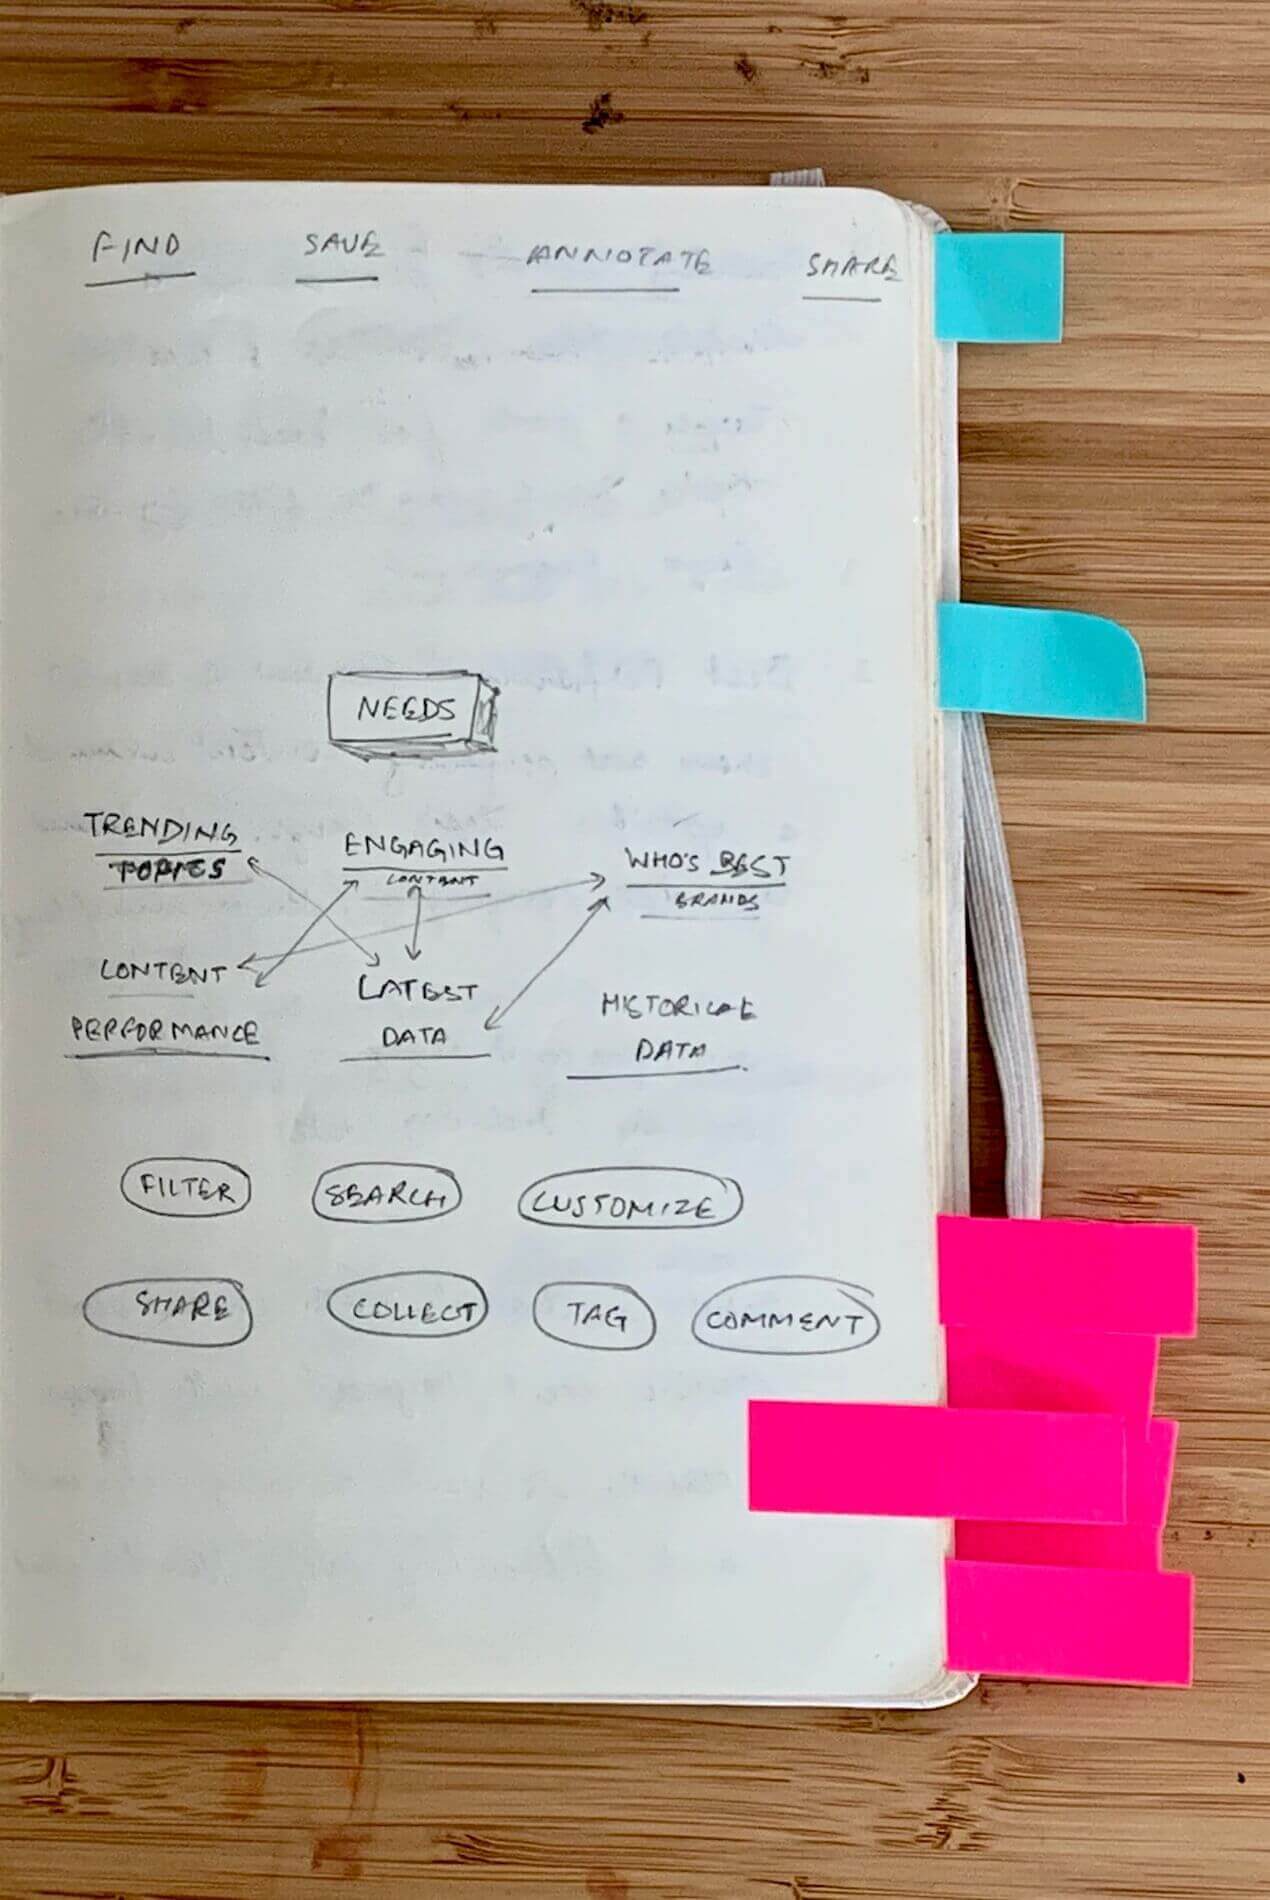 FIND SAVE ANNOTATE SHARE
NEEDS
TRENDING ENGAGING WHO'S BEST
TOPICS CONTENT BRANDS
CONTENT LATEST HISTORICAL
PERFORMANCE DATA DATA
FILTER SEARCH CUSTOMIZE
SHARE COLLECT TAG COMMENT